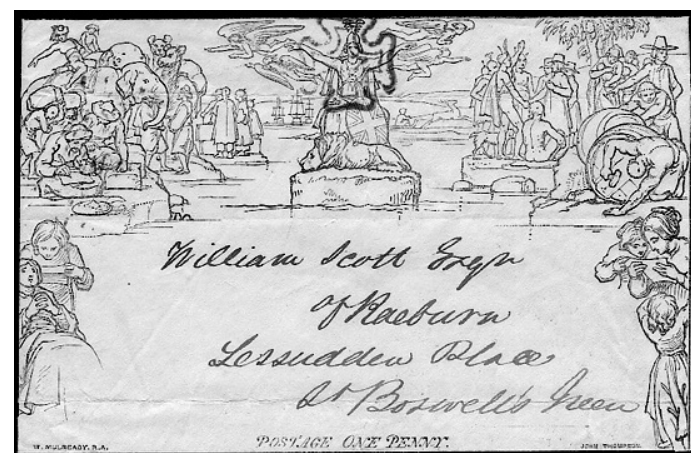 William Scott Esqr
of Raeburn
Lessudden Place
St Boswell's Green
W. MULREADY, R.A.
POSTAGE ONE PENNY.
JOHN THOMPSON